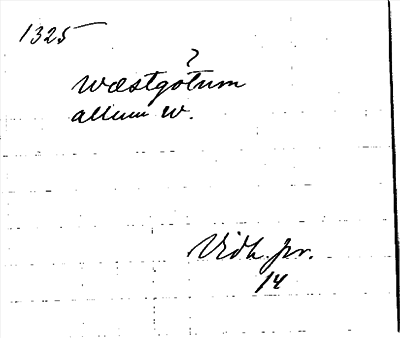 1325
?
wæstgøtum
allum w.
Vidh. pr.
14